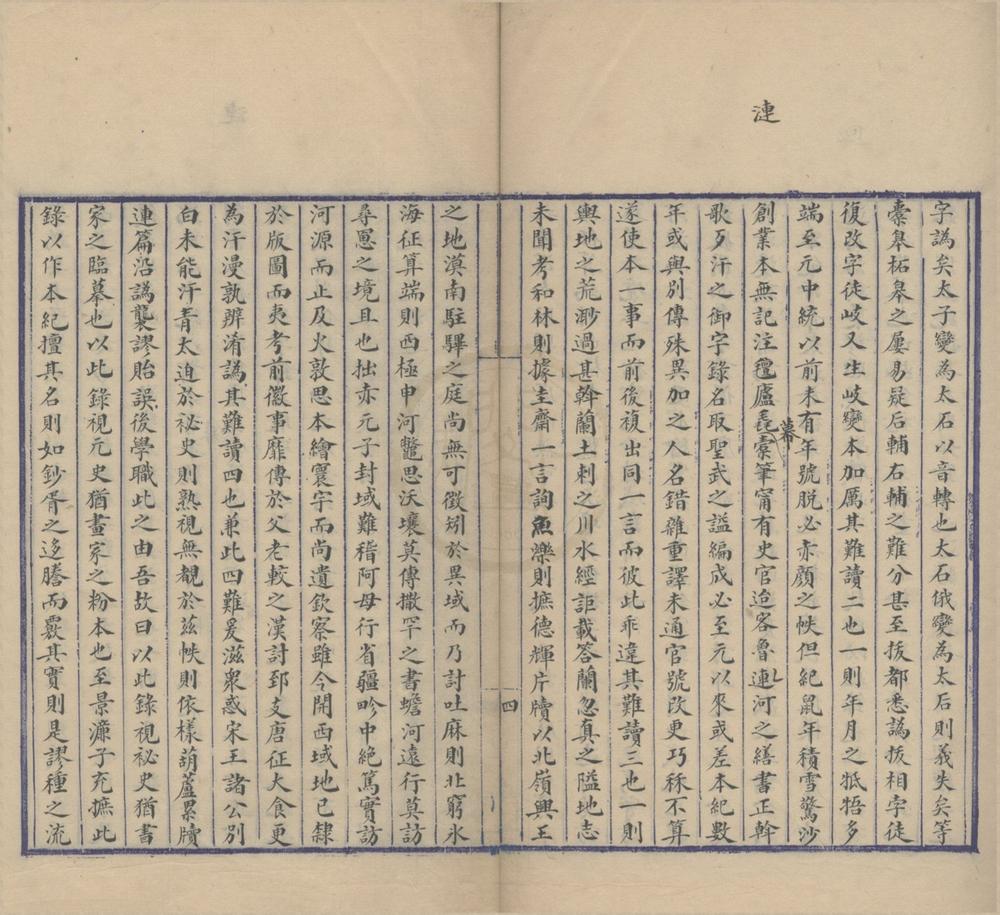 漣
字譌矣太子變為太石以音轉也太石俄變為太后則義失矣等
橐皋柘皋之屢易疑后輔右輔之難分甚至拔都悉譌拔相字徒
復改字徒歧又生歧變本加厲其難讀二也一則年月之牴牾多
端至元中統以前未有年號脫必赤顏之帙但紀鼠年積雪驚沙
創業本無記注氊廬毳索筆甯有史官迨客魯連河之繕書正幹
幕
歌歹汗之御宇錄名取聖武之謚編成必至元以來或差本紀數
年或與別傳殊異加之人名錯雜重譯未通官號改更巧秝不算
遂使本一事而前後複出同一言而彼此乖違其難讀三也一則
輿地之荒渺過甚斡蘭土剌之川水經詎載答蘭忽真之隘地志
未聞考和林則據圭齋一言詢魚濼則摭德輝片牘以北嶺興王
四
之地漠南駐驛之庭尚無可徵矧於異域而乃討吐麻則北窮氷
海征算端則西極申河鼈思沃壤莫傳撒罕之書蟾河遠行莫訪
尋愳之境且也拙亦元子封域難稽阿母行省疆畛中絕篤實訪
河源而止及火敦思本繪寰宇而尚遺欽察雖今開西域地已隸
於版圖而夷考前徽事靡傳於父老較之漢討郅支唐征大食更
為汗漫孰辨淆譌其難讀四也兼此四難爰滋眾惑宋王諸公別
白未能汗青太迫於祕史則熟視無覩於茲帙則依樣葫蘆累牘
連篇沿譌襲謬貽誤後學職此之由吾故曰以此錄視祕史猶書
家之臨摹也以此錄視元史猶畫家之粉本也至景濂子充摭此
錄以作本紀擅其名則如鈔胥之迻謄而覈其實則是謬種之流